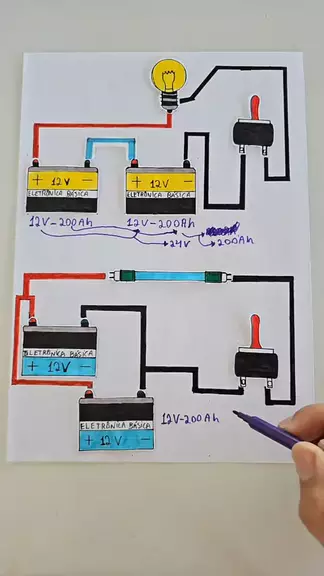 + 12V -
ELETRÔNICA BÁSICA
+ 12V -
ELETRÔNICA BÁSICA
12V-200Ah
12V-200Ah
24V
200Ah
ELETRÔNICA BÁSICA
+ 12V -
ELETRÔNICA BÁSICA
+ 12V -
12V-200Ah